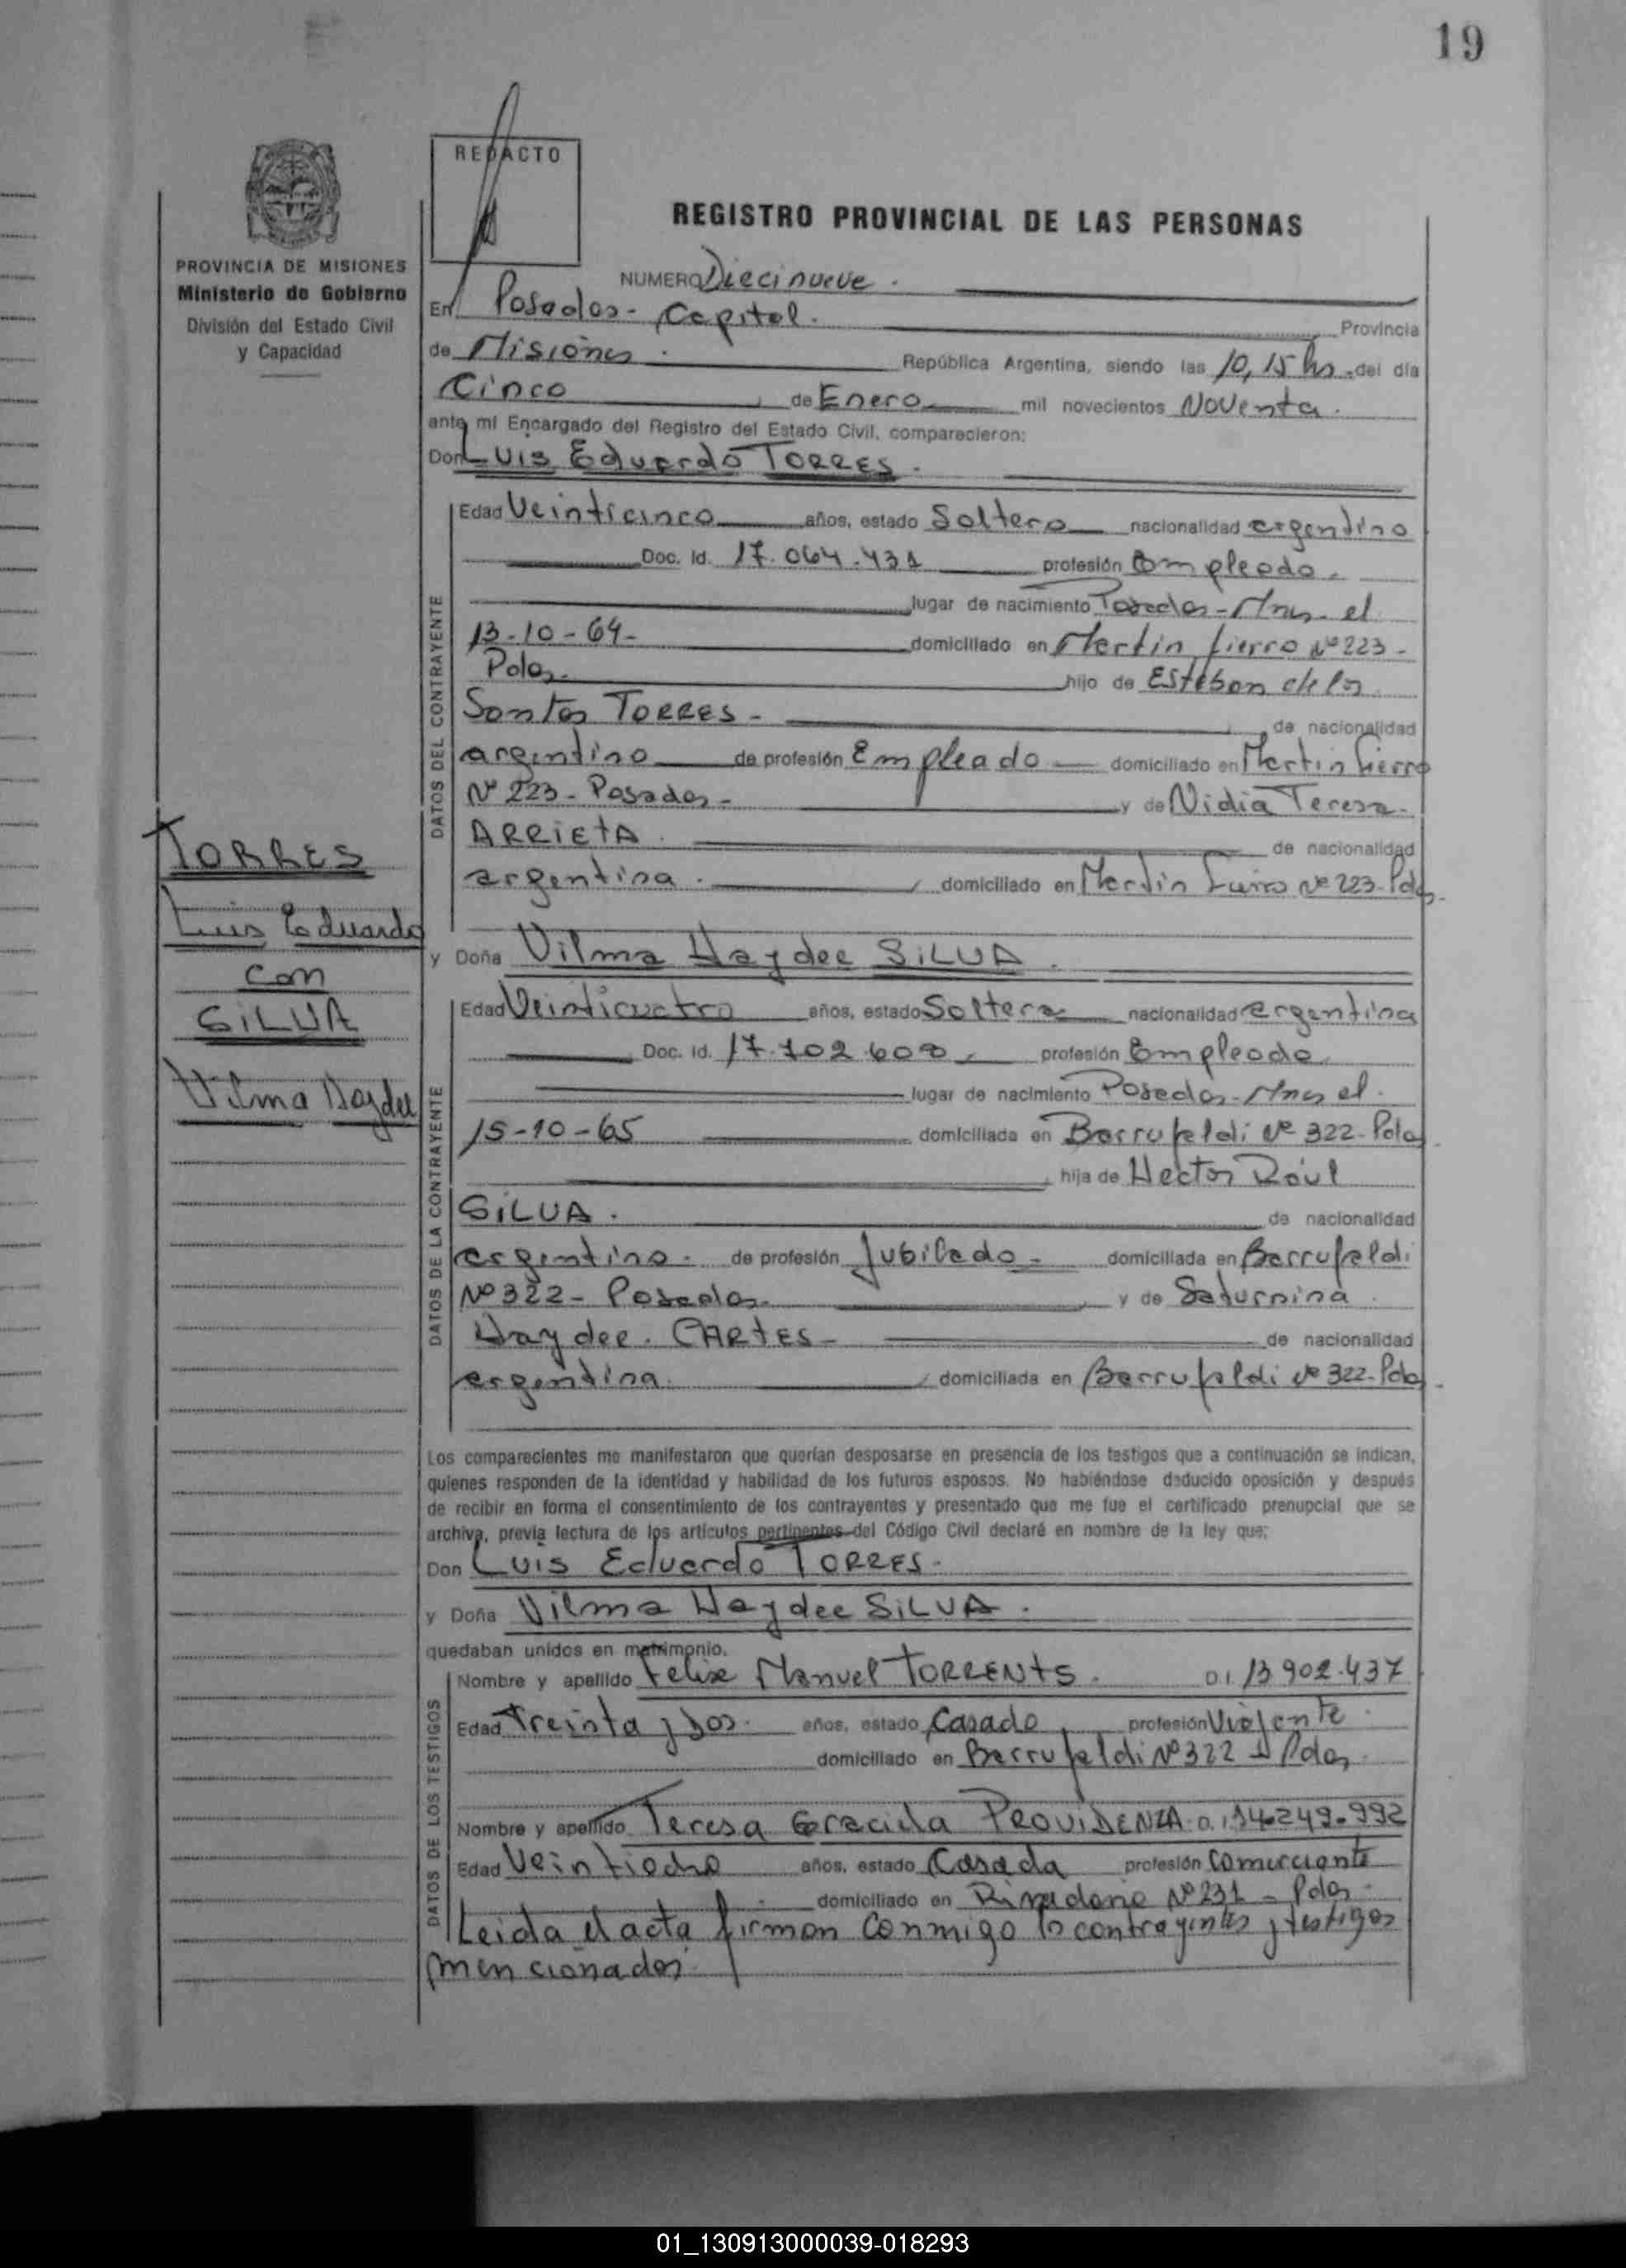 19
REDACTO
PROVINCIA DE MISIONES
Ministerio de Gobierno
División del Estado Civil
y Capacidad
REGISTRO PROVINCIAL DE LAS PERSONAS
NUMERO Diecinueve.
En Posadas - Capital. Provincia
de Misiones. República Argentina, siendo las 10,15 hs. del día
Cinco de Enero mil novecientos Noventa.
ante mi Encargado del Registro del Estado Civil, comparecieron:
Don Luis Eduardo TORRES.
DATOS DEL CONTRAYENTE
Edad Veinticinco años, estado Soltero nacionalidad argentino
Doc. Id. 17.064.431 profesión Empleado.
lugar de nacimiento Posadas - Mnes el
13-10-64- domiciliado en Martin fierro Nº 223 -
Pdas. hijo de Esteban de los
Santos TORRES - de nacionalidad
argentino de profesión Empleado domiciliado en Martin Fierro
Nº 223 - Posadas - y de Nidia Teresa
ARRIETA. de nacionalidad
argentina. domiciliado en Martin Fierro Nº 223 - Pdas.
y Doña Vilma Haydee SILVA.
DATOS DE LA CONTRAYENTE
Edad Veinticuatro años, estado Soltera nacionalidad argentina
Doc. Id. 17.702.600 profesión Empleada
lugar de nacimiento Posadas - Mnes el.
15-10-65 domiciliada en Barrufaldi Nº 322 - Pdas
hija de Hector Raúl
SILVA. de nacionalidad
argentino. de profesión Jubilado - domiciliada en Barrufaldi
Nº 322 - Posadas. y de Saturnina
Haydee. CARTES - de nacionalidad
argentina. domiciliada en Barrufaldi Nº 322 - Pdas.
TORRES
Luis Eduardo
con
SILVA
Vilma Haydee
Los comparecientes me manifestaron que querían desposarse en presencia de los testigos que a continuación se indican,
quienes responden de la identidad y habilidad de los futuros esposos. No habiéndose deducido oposición y después
de recibir en forma el consentimiento de los contrayentes y presentado que me fue el certificado prenupcial que se
archiva, previa lectura de los artículos pertinentes del Código Civil declaré en nombre de la ley que;
Don Luis Eduardo TORRES.
y Doña Vilma Haydee SILVA.
quedaban unidos en matrimonio.
DATOS DE LOS TESTIGOS
Nombre y apellido Felix Manuel TORRENTS. D.I. 13.902.437
Edad Treinta y Dos. años, estado Casado profesión Viajante
domiciliado en Barrufaldi Nº 322 - Pdas.
Nombre y apellido Teresa Graciela PROVIDENZA. D.I. 14.249.992
Edad Veintiocho años, estado Casada profesión Comerciante
domiciliado en Rivadavia Nº 231 - Pdas.
Leida el acta firman conmigo los contrayentes y testigos
mencionados.
01_130913000039-018293